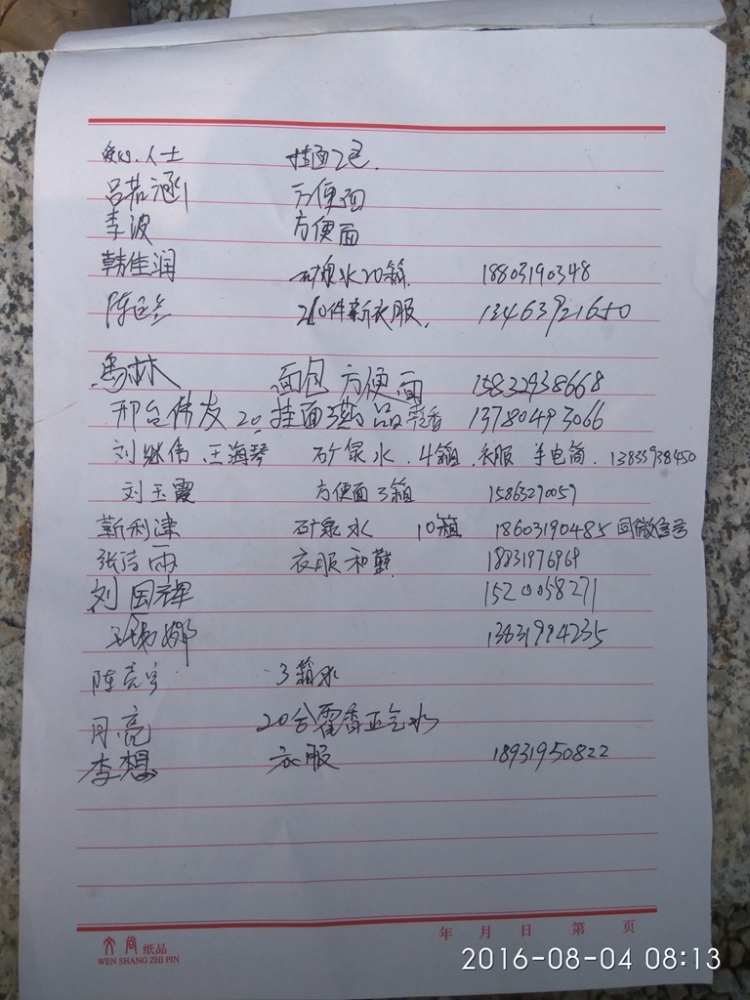 爱心人士 挂面2包.
吕若涵 方便面
李波 方便面
韩佳润 矿泉水20箱. 18803190348
陈 210件新衣服. 13463921650
马林 面包 方便面 15832938668
邢台 友 20. 挂面 品 13780493066
刘继伟.王海琴 矿泉水.4箱.衣服 手电筒. 13833938450
刘玉霞 方便面3箱 1586329059
靳利津 矿泉水 10箱 18603190485 同微信号
张洁雨 衣服和鞋 18831976969
刘国辉 1520058271
王 娜 13631994235
陈亮宇 3箱水
闫亮 20盒藿香正气水
李想 衣服 18931950822
年 月 日 第 页
文尚 纸品
WEN SHANG ZHI PIN
2016-08-04 08:13